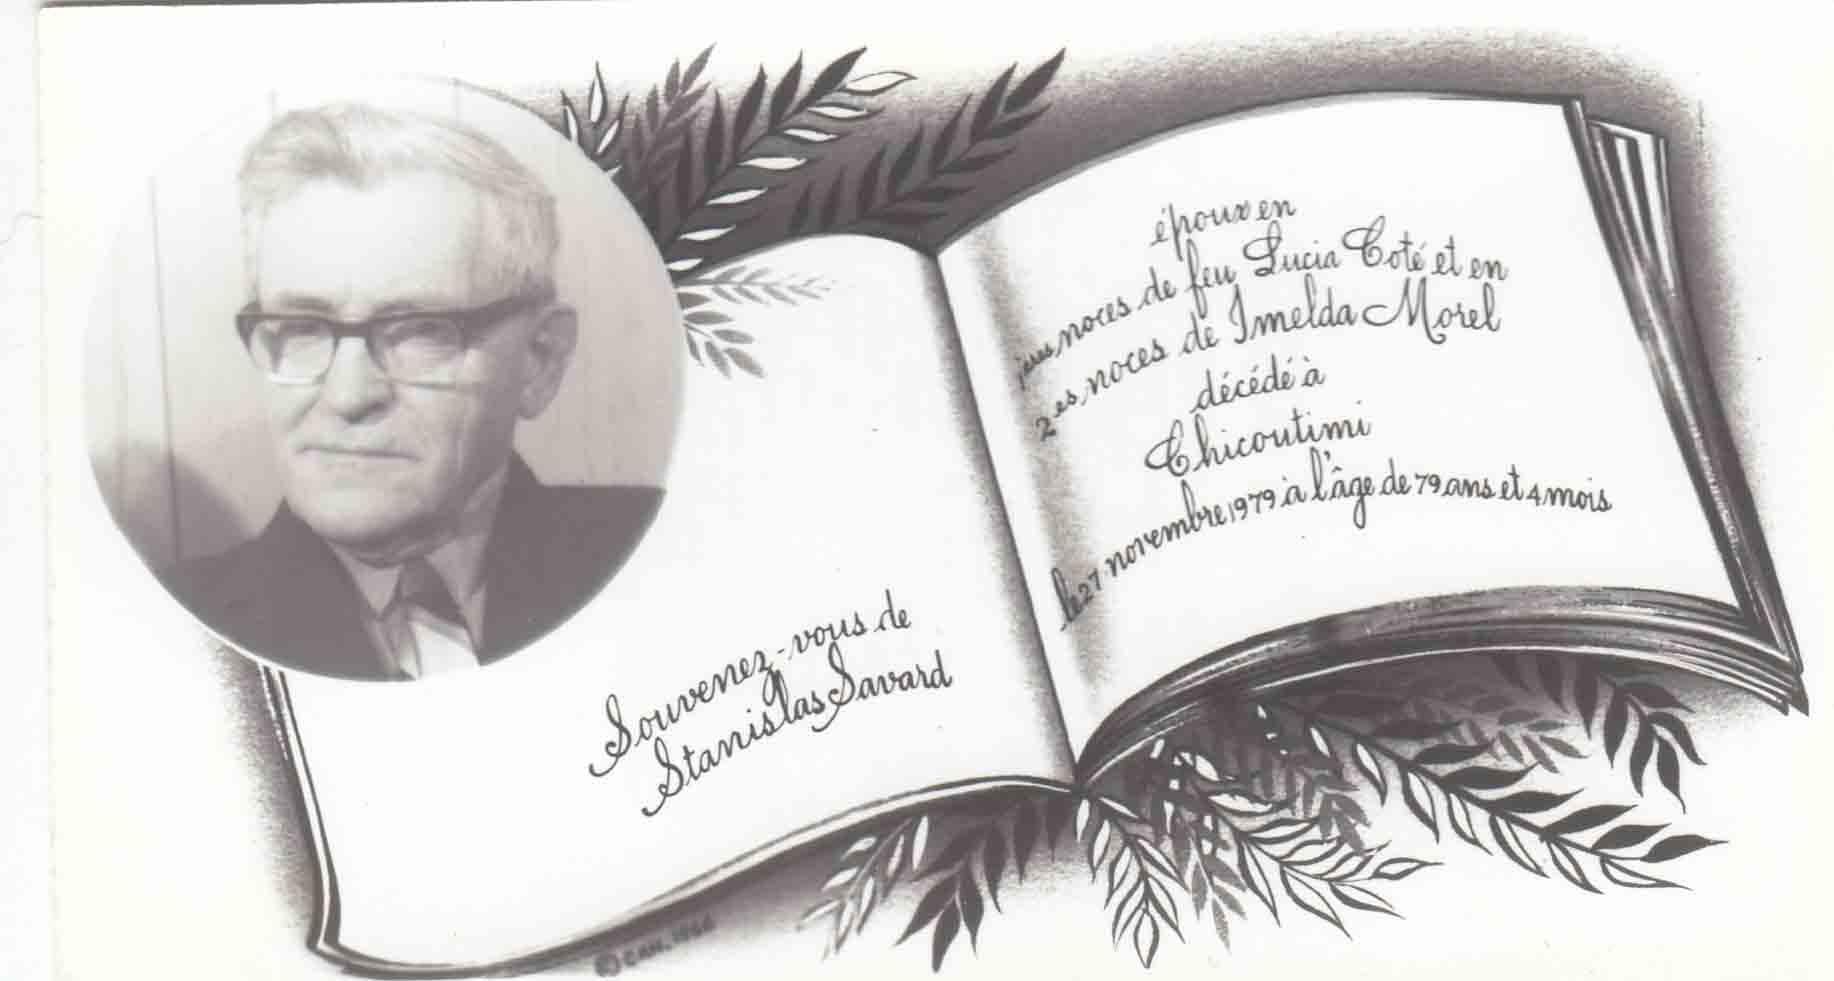 Souvenez-vous de
Stanislas Savard
époux en
1ères noces de feu Lucia Coté et en
2es noces de Imelda Morel
décédé à
Chicoutimi
le 27 novembre 1979 à l'âge de 79 ans et 4 mois
© CAN. 1966